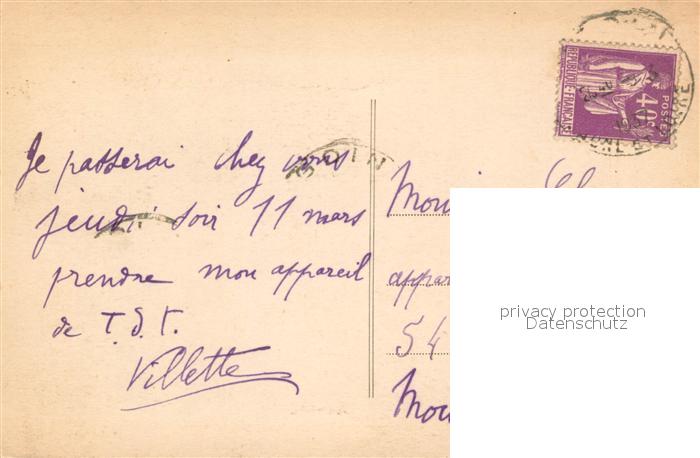 Je passerai chez vous
jeudi soir 11 mars
prendre mon appareil
de T.S.F.
Villette
REPUBLIQUE-FRANÇAISE
40c
POSTES
privacy protection
Datenschutz
54